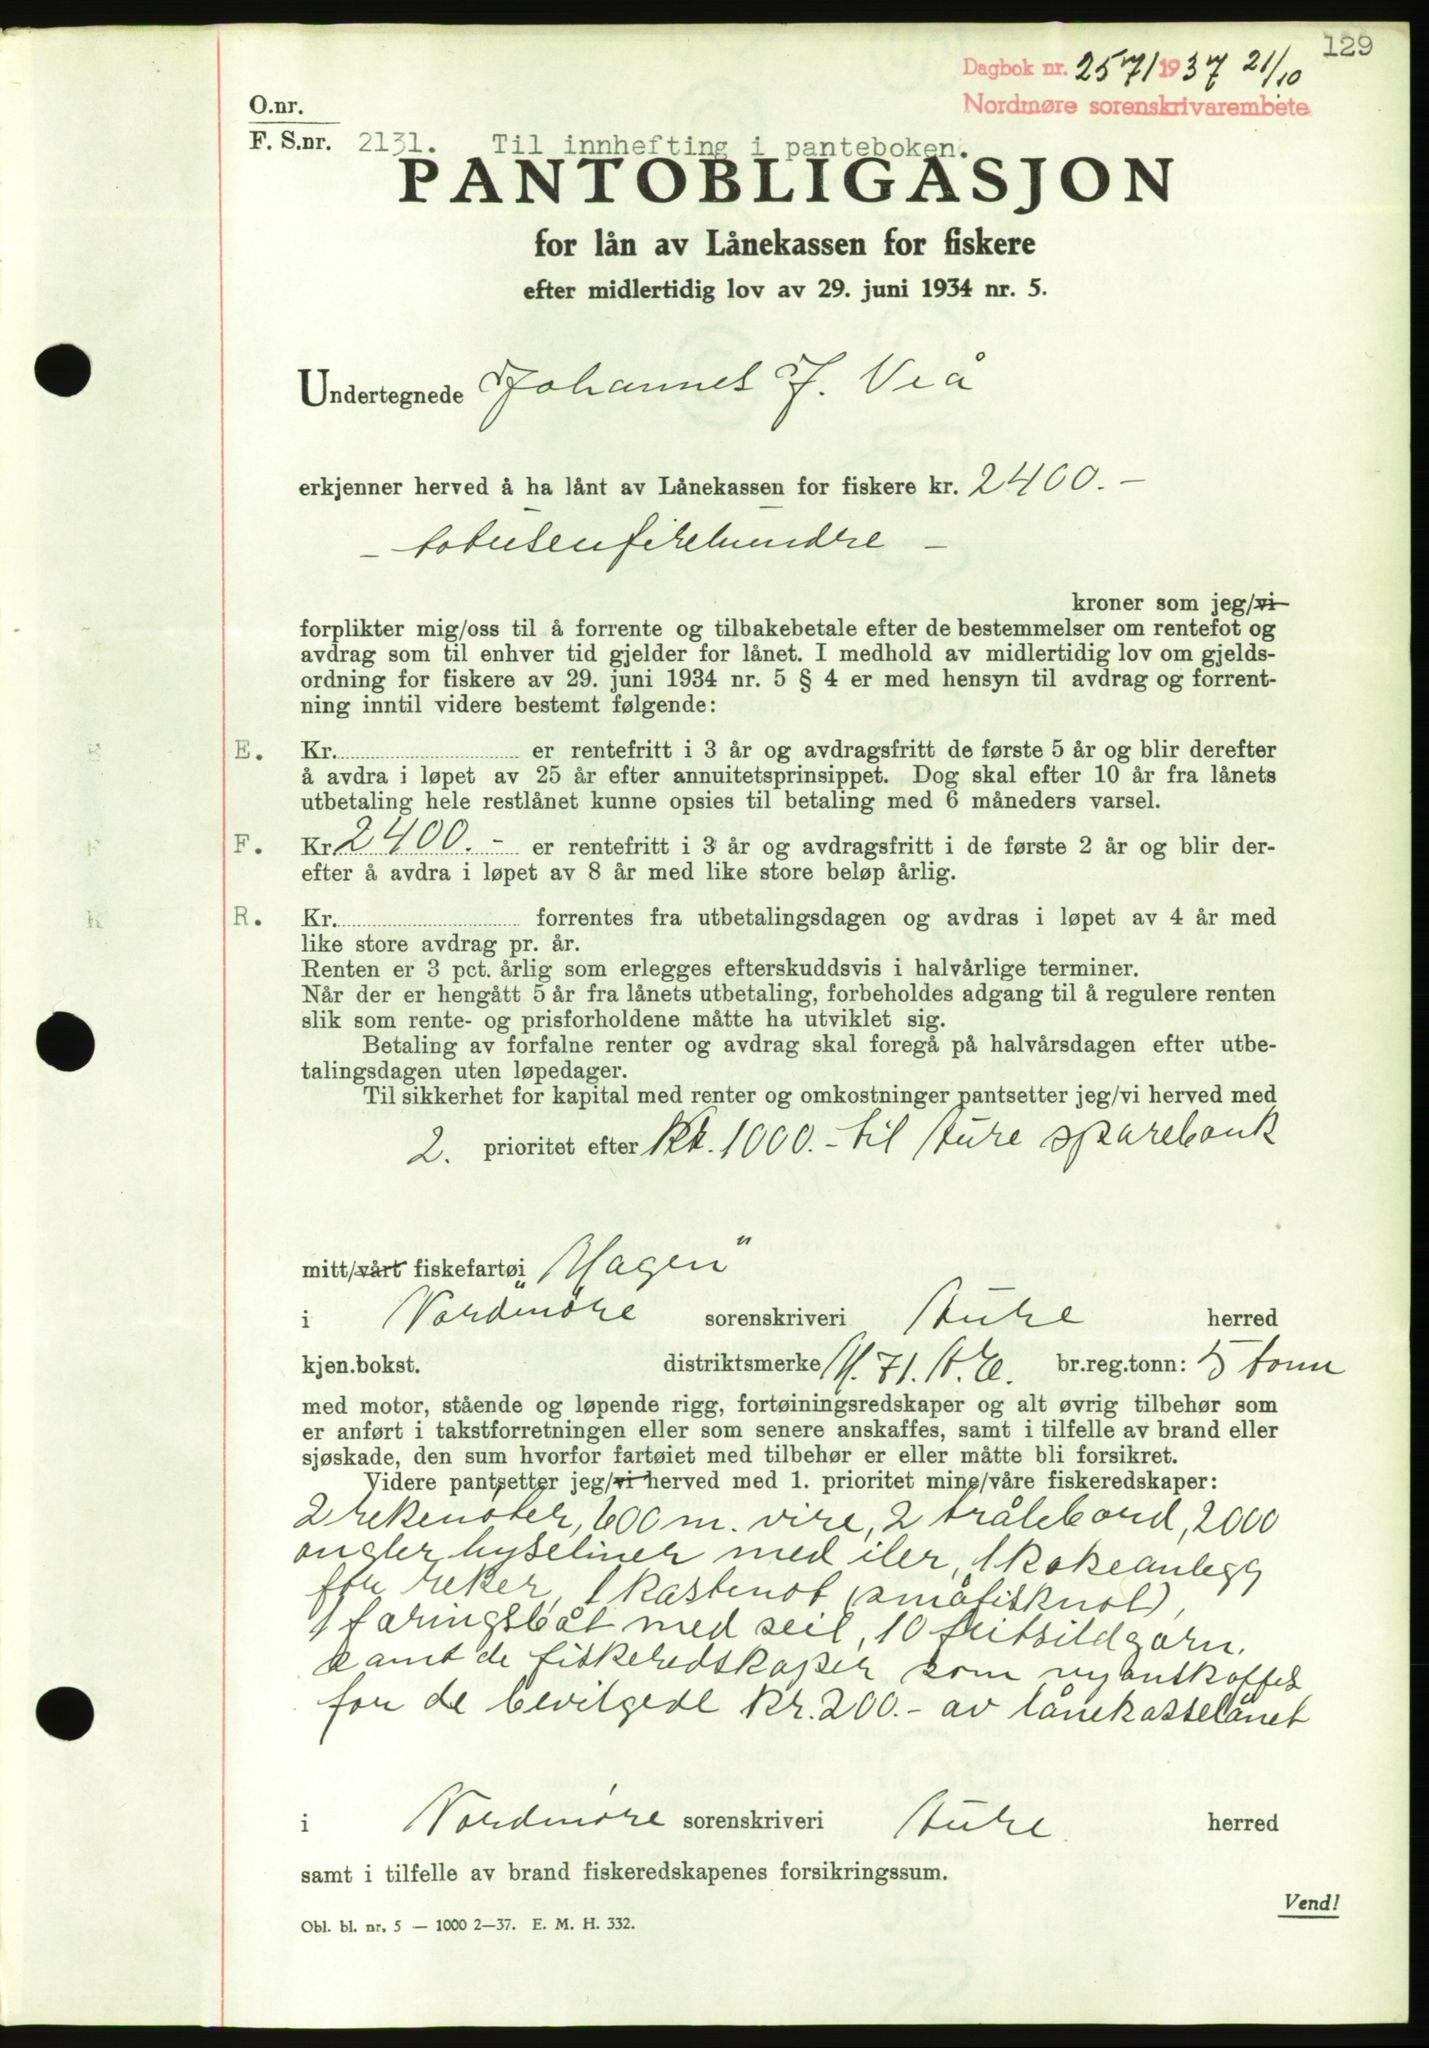 129
Dagbok nr. 2571 1937 21/10
Nordmøre sorenskrivarembete
O.nr.
F. S.nr. 2131. Til innhefting i panteboken.
PANTOBLIGASJON
for lån av Lånekassen for fiskere
efter midlertidig lov av 29. juni 1934 nr. 5.
Undertegnede Johannes J. Viå
erkjenner herved å ha lånt av Lånekassen for fiskere kr. 2400.-
- totusenfirehundre -
kroner som jeg/vi
forplikter mig/oss til å forrente og tilbakebetale efter de bestemmelser om rentefot og
avdrag som til enhver tid gjelder for lånet. I medhold av midlertidig lov om gjelds-
ordning for fiskere av 29. juni 1934 nr. 5 § 4 er med hensyn til avdrag og forrent-
ning inntil videre bestemt følgende:
E. Kr. er rentefritt i 3 år og avdragsfritt de første 5 år og blir derefter
å avdra i løpet av 25 år efter annuitetsprinsippet. Dog skal efter 10 år fra lånets
utbetaling hele restlånet kunne opsies til betaling med 6 måneders varsel.
F. Kr 2400.- er rentefritt i 3 år og avdragsfritt i de første 2 år og blir der-
efter å avdra i løpet av 8 år med like store beløp årlig.
R. Kr. forrentes fra utbetalingsdagen og avdras i løpet av 4 år med
like store avdrag pr. år.
Renten er 3 pct. årlig som erlegges efterskuddsvis i halvårlige terminer.
Når der er hengått 5 år fra lånets utbetaling, forbeholdes adgang til å regulere renten
slik som rente- og prisforholdene måtte ha utviklet sig.
Betaling av forfalne renter og avdrag skal foregå på halvårsdagen efter utbe-
talingsdagen uten løpedager.
Til sikkerhet for kapital med renter og omkostninger pantsetter jeg/vi herved med
2. prioritet efter Kr. 1000.- til Aure sparebank
mitt/vårt fiskefartøi "Hagen"
i Nordmøre sorenskriveri Aure herred
kjen.bokst. distriktsmerke M. 71. A.E. br.reg.tonn: 5 tonn
med motor, stående og løpende rigg, fortøiningsredskaper og alt øvrig tilbehør som
er anført i takstforretningen eller som senere anskaffes, samt i tilfelle av brand eller
sjøskade, den sum hvorfor fartøiet med tilbehør er eller måtte bli forsikret.
Videre pantsetter jeg/vi herved med 1. prioritet mine/våre fiskeredskaper:
2 rekenøter, 600 m. vire, 2 trålebord, 2000
angler hyseliner med iler, 1 kokeanlegg
for reker, 1 kastenot (småfisknot),
1 færingsbåt med seil, 10 fritsildgarn.
samt de fiskeredskaper som nyanskaffes
for de bevilgede kr. 200.- av lånekasselånet
i Nordmøre sorenskriveri Aure herred
samt i tilfelle av brand fiskeredskapenes forsikringssum.
Vend!
Obl. bl. nr. 5 — 1000 2—37. E. M. H. 332.